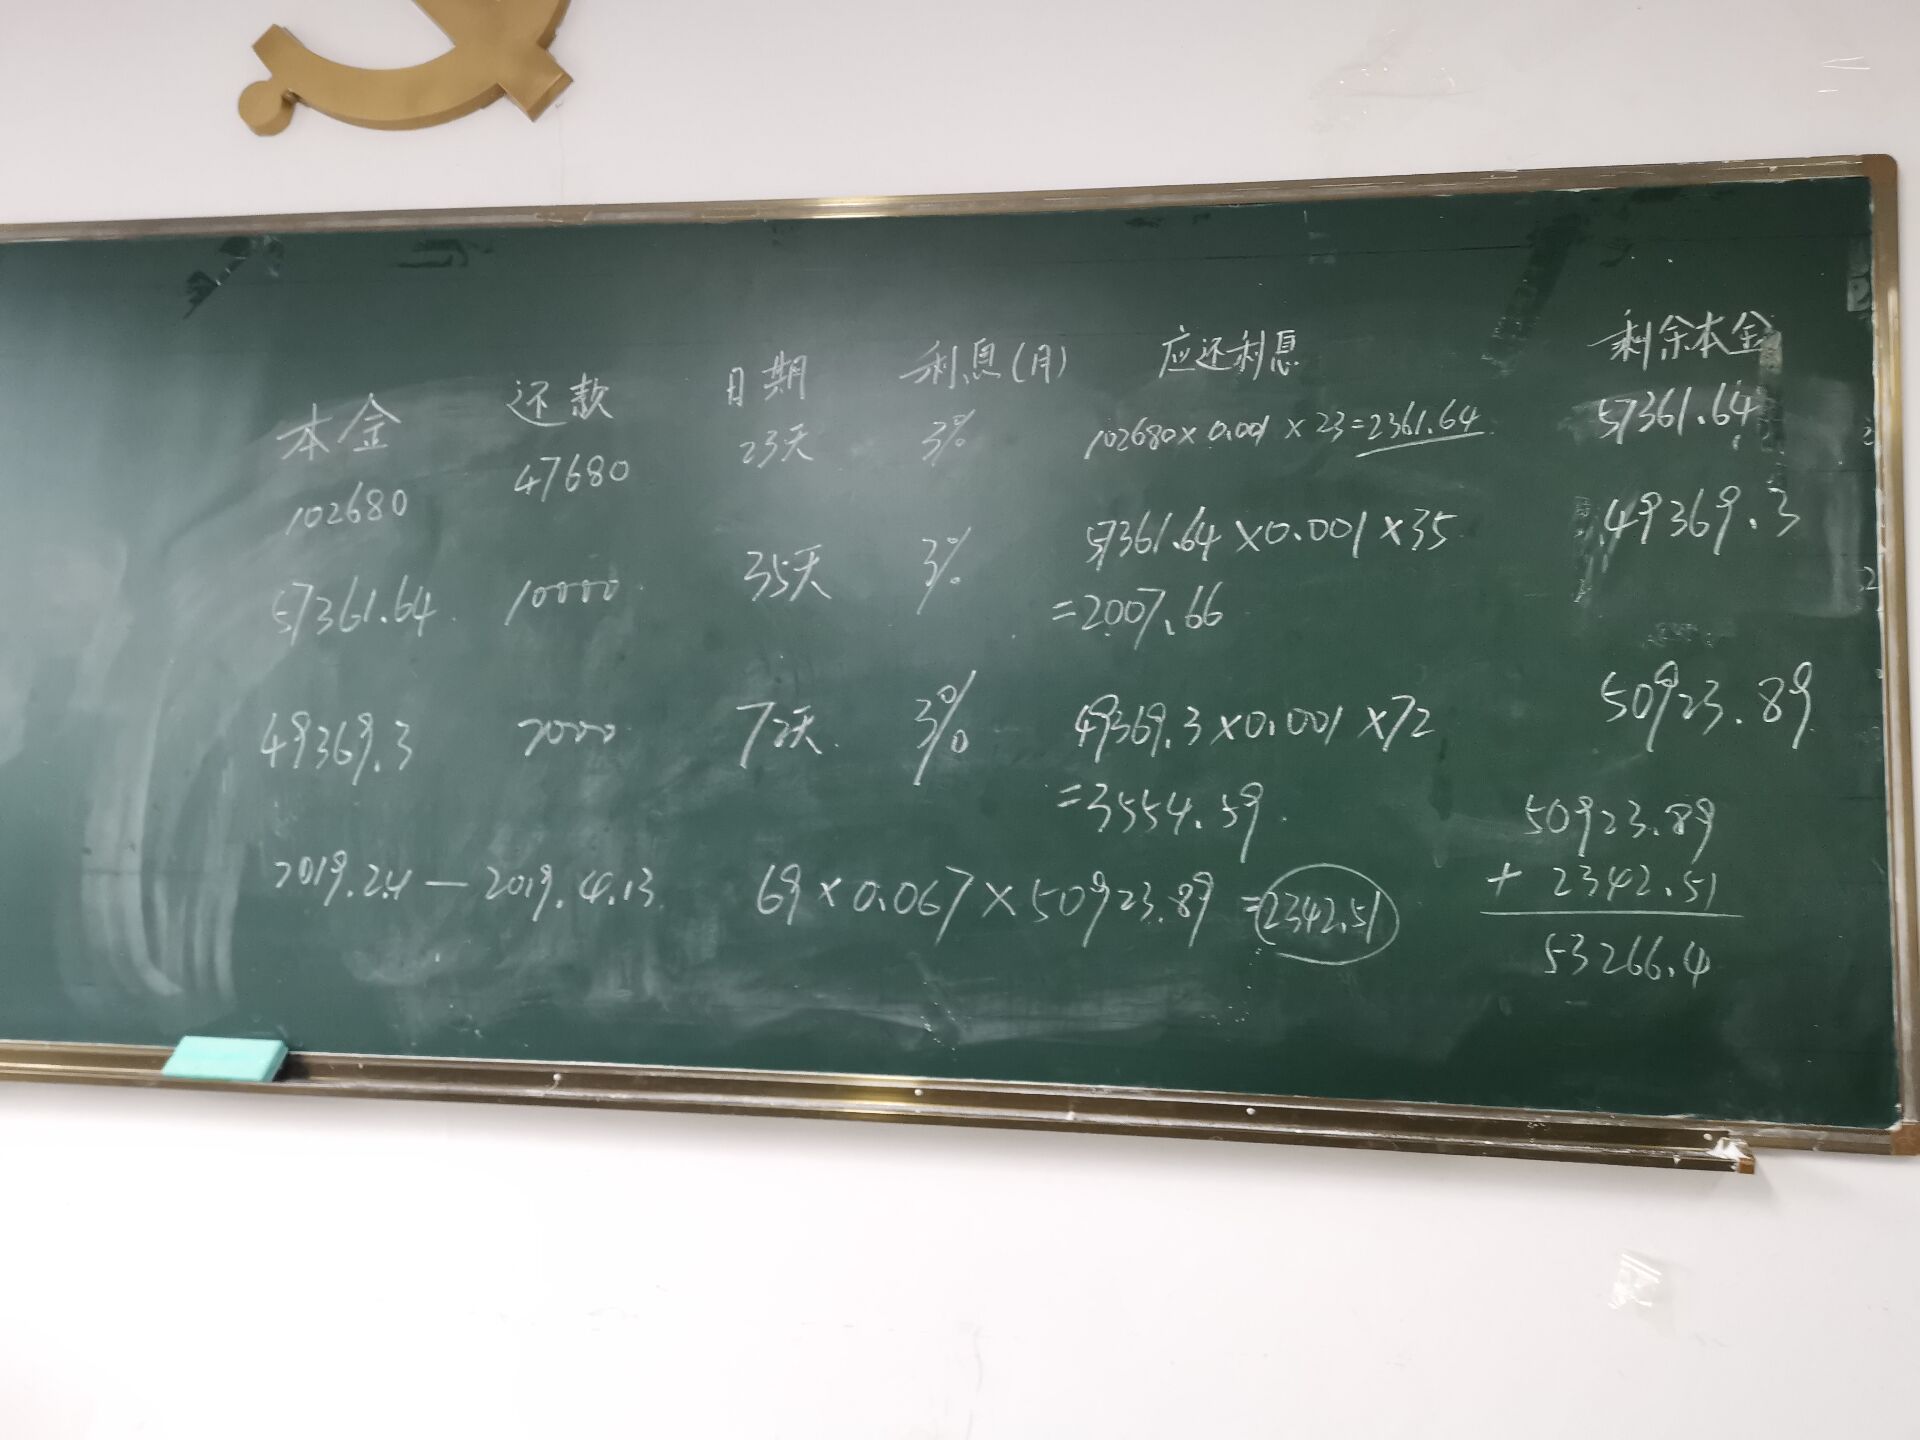 本金 还款 日期 利息(月) 应还利息 剩余本金
102680 47680 23天 3% 102680×0.001×23=2361.64 57361.64
57361.64 10000 35天 3% 57361.64×0.001×35 49369.3
=2007.66
49369.3 2000 72天 3% 49369.3×0.001×72 50923.89
=3554.59
2019.2.4—2019.4.13 69×0.067×50923.89=2342.51
50923.89
+2342.51
53266.4